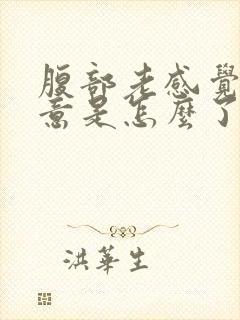 腹部老感覺
意是怎麼了
洪華生